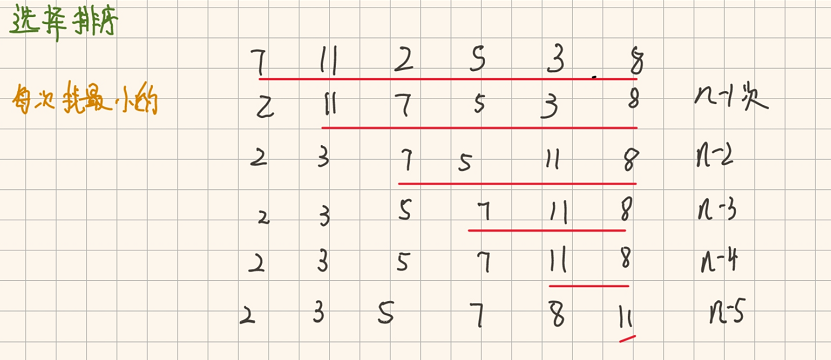 选择排序
7 11 2 5 3 8
每次找最小的
2 11 7 5 3 8 n-1次
2 3 7 5 11 8 n-2
2 3 5 7 11 8 n-3
2 3 5 7 11 8 n-4
2 3 5 7 8 11 n-5